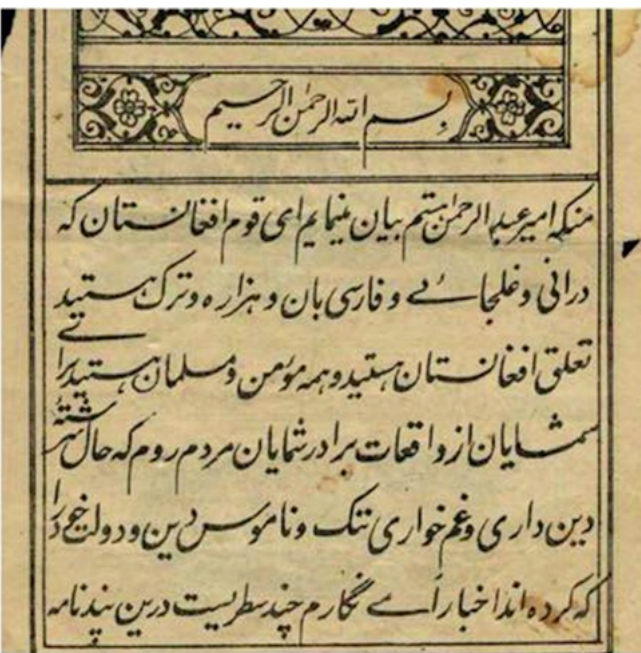 بسم الله الرحمن الرحیم
منکه امیر عبدالرحمن هستم بیان مینمایم ای قوم افغانستان که
درانی و غلجائے و فارسی بان و هزاره و ترک هستید
تعلق افغانستان هستید و همه مؤمن و مسلمان هستید برائے
شمایان از واقعات برادر شمایان مردم روم که حال سررشتهٔ
دین داری و غم خواری ننگ و ناموس دین و دولت خود را
که کرده اند اخباراً مے نگارم چند سطریست درین پندنامه